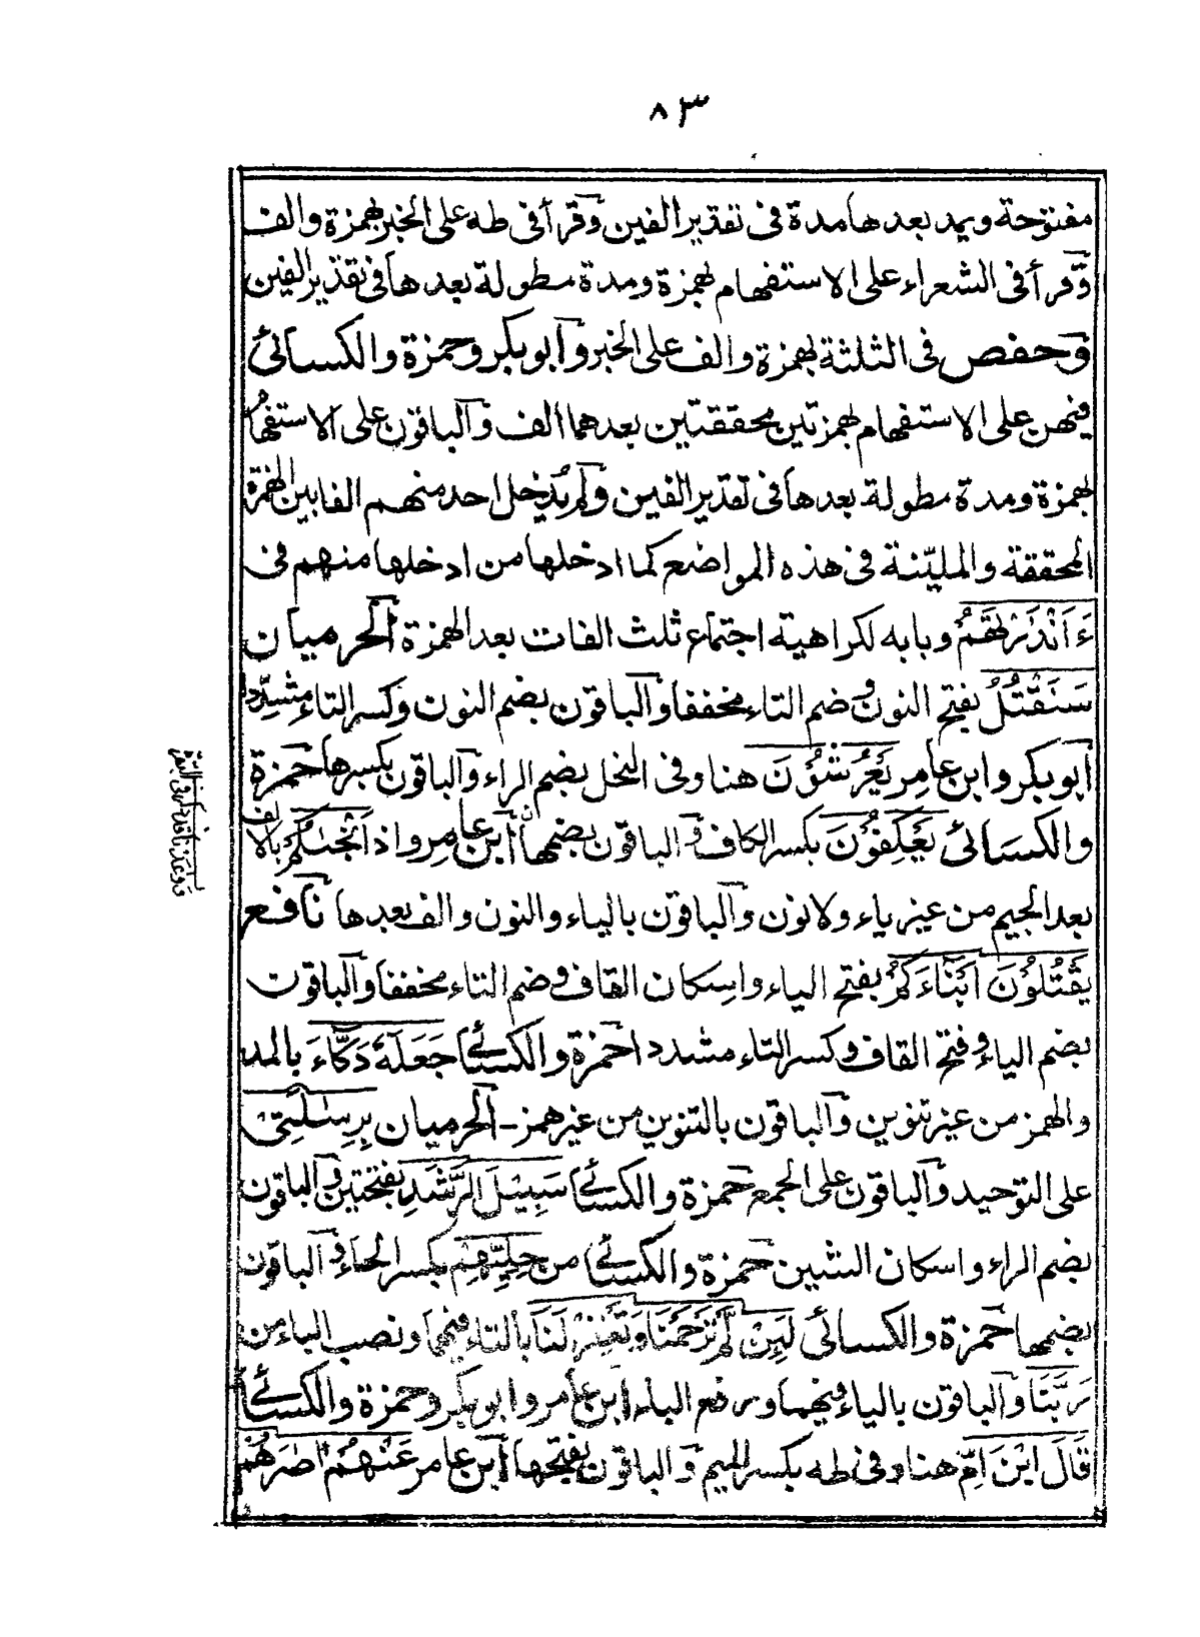 ٨٣
مفتوحة ويمد بعدها مدة فى تقدير الفين وقرأ فى طه على الخبر بهمزة والف
وقرأ فى الشعراء على الاستفهام بهمزة ومدة مطولة بعدها فى تقدير الفين
وحفص فى الثلثة بهمزة والف على الخبر وابو بكر وحمزة والكسائى
فيهن على الاستفهام بهمزتين محققتين بعدهما الف والباقون على الاستفهام
بهمزة ومدة مطولة بعدها فى تقدير الفين ولم يُدخل احد منهم الفا بين الهمزة
المحققة والمليّنة فى هذه المواضع كما ادخلها من ادخلها منهم فى
ءَاَنْذَرْتَهُمْ وبابه لكراهية اجتماع ثلث الفات بعد الهمزة الحرميان
سَنَقْتُلُ بفتح النون وضم التاء مخففا والباقون بضم النون وكسر التاء مشددا
ابو بكر وابن عامر يَعْرُشُوْنَ هنا وفى النحل بضم الراء والباقون بكسرها حمزة
والكسائى يَعْكِفُوْنَ بكسر الكاف والباقون بضمها ابن عامر واذ اَنْجٰىكُمْ بالالف
بعد الجيم من غير ياء ولا نون والباقون بالياء والنون والف بعدها نافع
يَقْتُلُوْنَ اَبْنَاءَكُمْ بفتح الياء واسكان القاف وضم التاء مخففا والباقون
بضم الياء وفتح القاف وكسر التاء مشددا حمزة والكسائى جَعَلَهٗ دَكَّاءَ بالمد
والهمز من غير تنوين والباقون بالتنوين من غير همز - الحرميان بِرِسٰلَتِىْ
على التوحيد والباقون على الجمع حمزة والكسائى سَبِيْلَ الرَّشَدِ بفتحتين والباقون
بضم الراء واسكان الشين حمزة والكسائى من حِلِيِّهِمْ بكسر الحاء والباقون
بضمها حمزة والكسائى لَئِنْ لَّمْ تَرْحَمْنَا وَتَغْفِرْ لَنَا بالتاء فيهما ونصب الباء من
رَبَّنَا والباقون بالياء فيهما ورفع الباء ابن عامر وابو بكر وحمزة والكسائى
قَالَ ابْنَ اُمِّ هنا وفى طه بكسر الميم والباقون بفتحها ابن عامر عَنْهُمْ اٰصَرَهُمْ